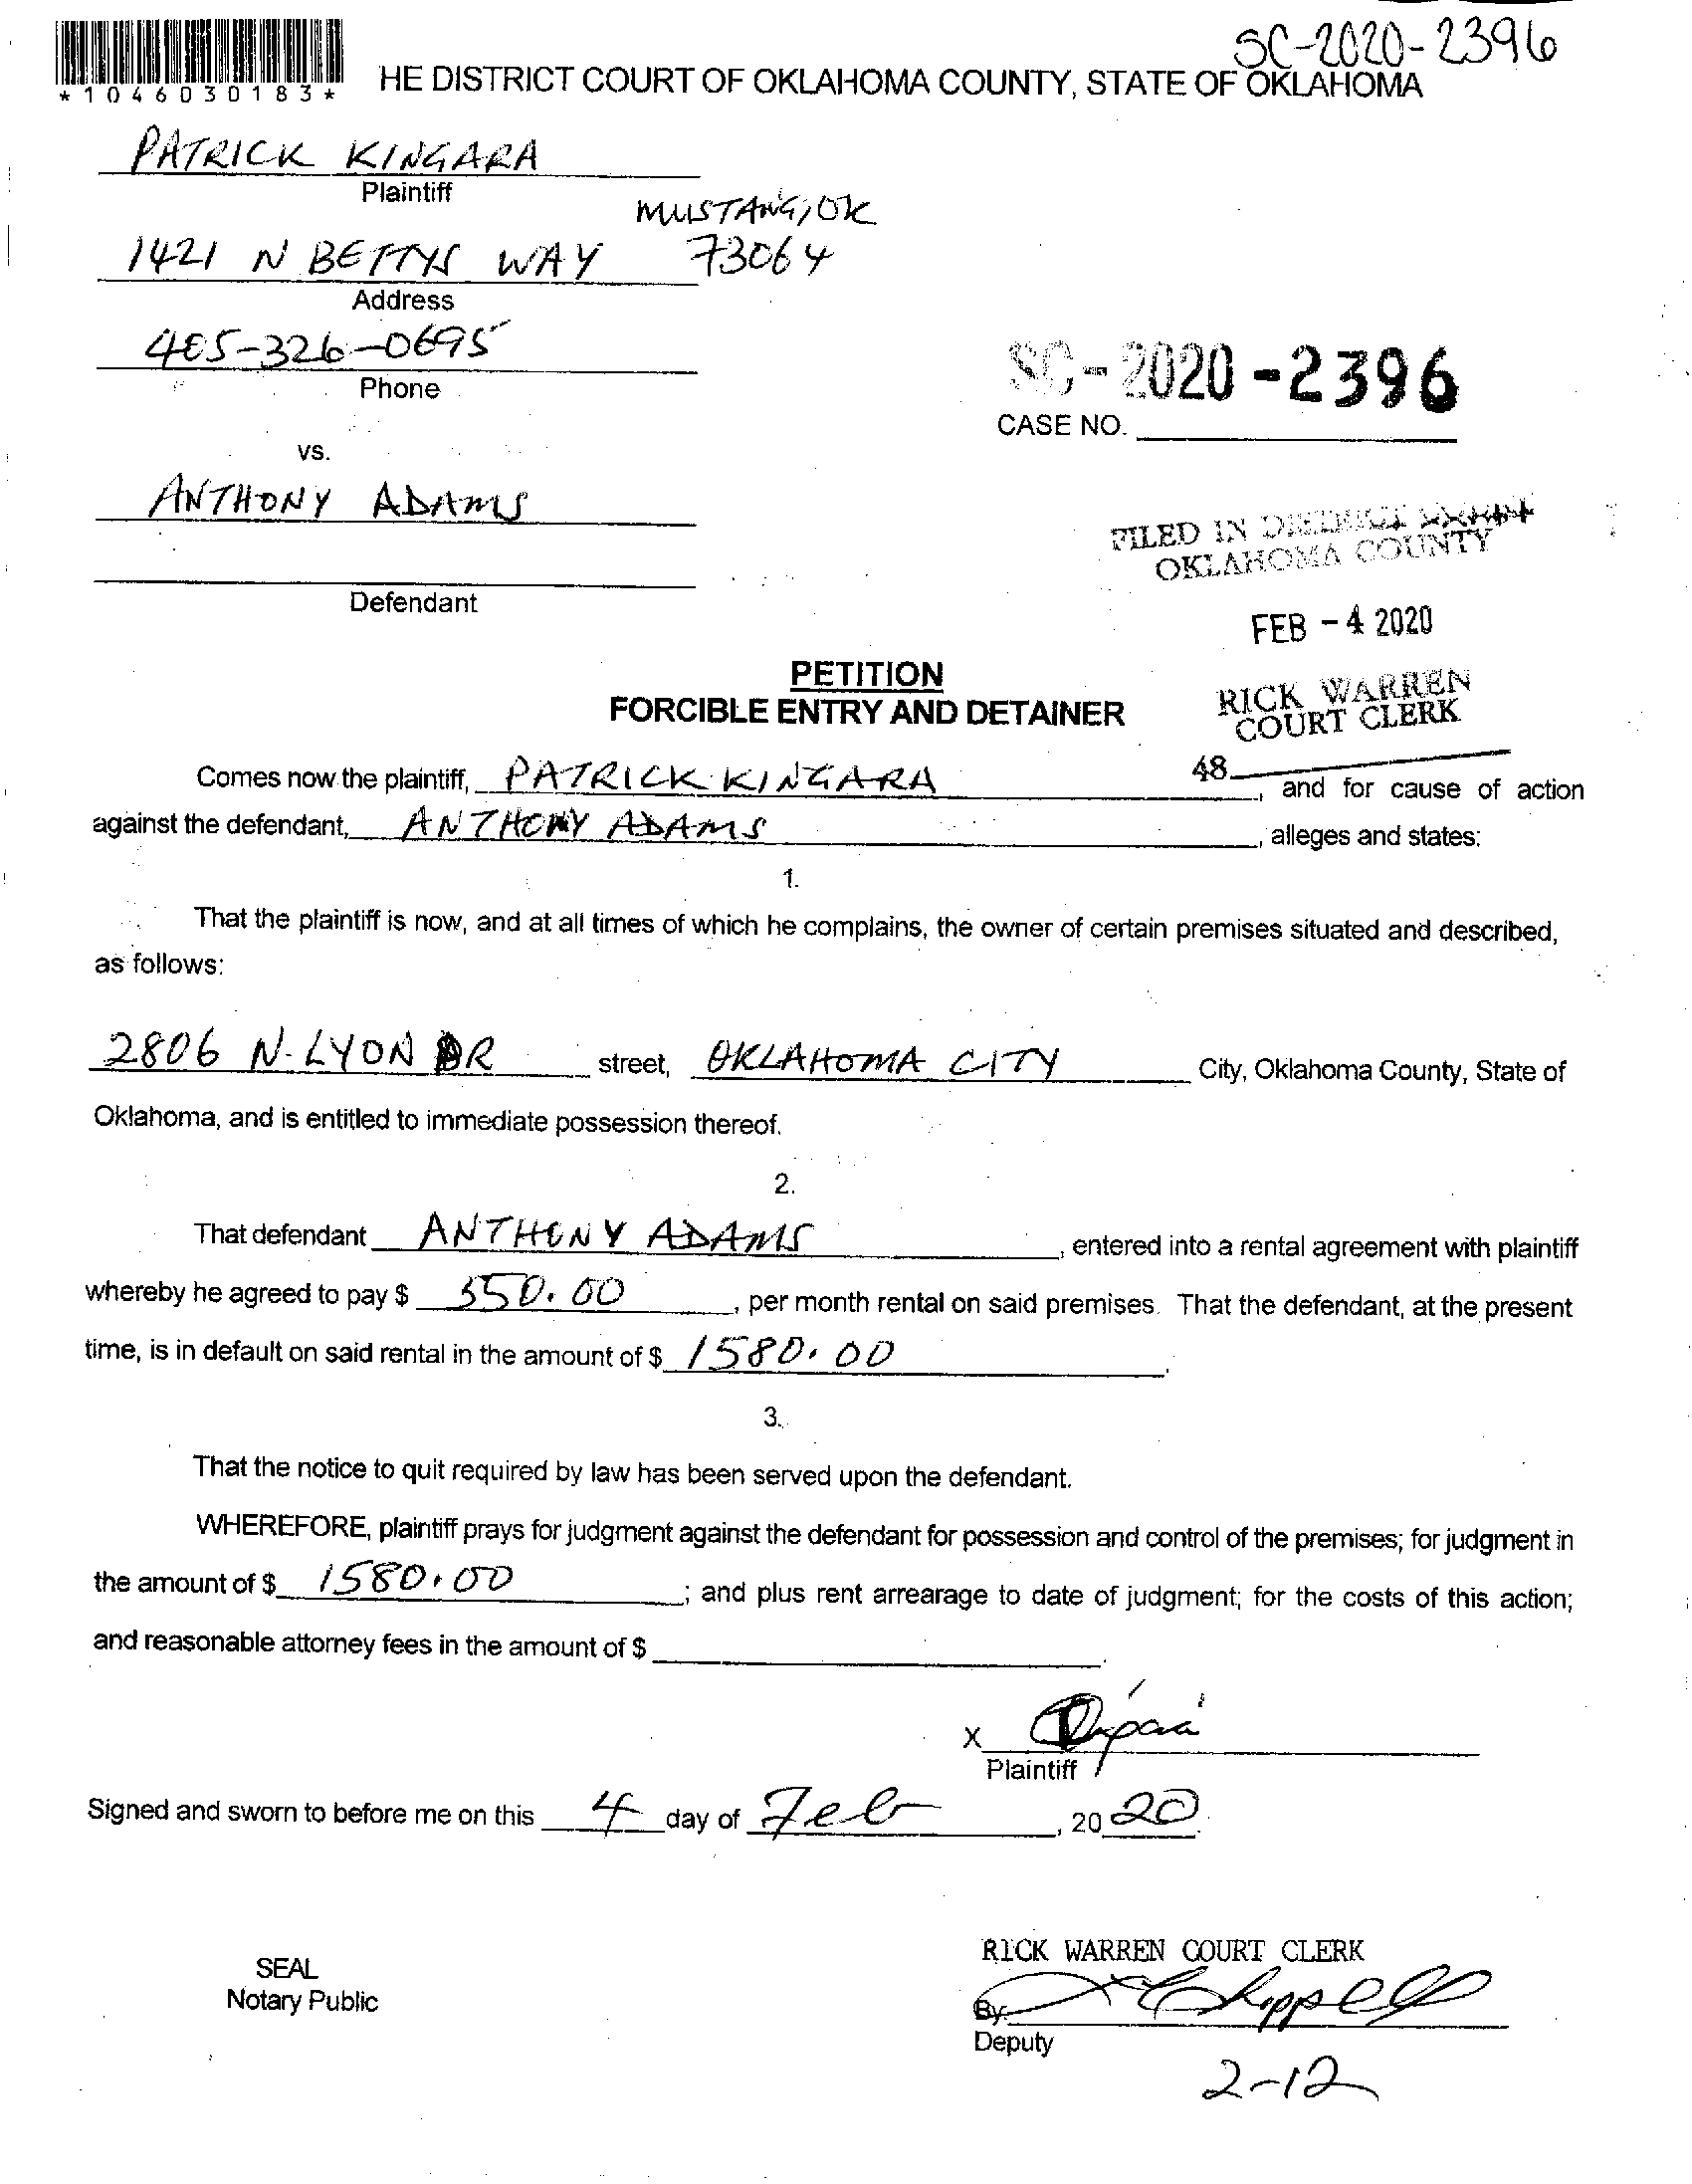 SC-2020-2396
*1046030183*
HE DISTRICT COURT OF OKLAHOMA COUNTY, STATE OF OKLAHOMA
PATRICK KINGARA
Plaintiff
MUSTANG, OK
1421 N BETTYS WAY 73064
Address
405-326-0695
Phone
SC-2020-2396
CASE NO.
vs.
ANTHONY ADAMS
FILED IN DISTRICT COURT
OKLAHOMA COUNTY
Defendant
FEB - 4 2020
PETITION
FORCIBLE ENTRY AND DETAINER
RICK WARREN
COURT CLERK
48
Comes now the plaintiff, PATRICK KINGARA, and for cause of action
against the defendant, ANTHONY ADAMS, alleges and states:
1.
That the plaintiff is now, and at all times of which he complains, the owner of certain premises situated and described,
as follows:
2806 N. LYON DR street, OKLAHOMA CITY City, Oklahoma County, State of
Oklahoma, and is entitled to immediate possession thereof.
2.
That defendant ANTHONY ADAMS, entered into a rental agreement with plaintiff
whereby he agreed to pay $ 550.00, per month rental on said premises. That the defendant, at the present
time, is in default on said rental in the amount of $ 1580.00.
3.
That the notice to quit required by law has been served upon the defendant.
WHEREFORE, plaintiff prays for judgment against the defendant for possession and control of the premises; for judgment in
the amount of $ 1580.00; and plus rent arrearage to date of judgment; for the costs of this action;
and reasonable attorney fees in the amount of $ .
X
Plaintiff
Signed and sworn to before me on this 4 day of Feb, 2020.
RICK WARREN COURT CLERK
SEAL
Notary Public
By:
Deputy
2-12